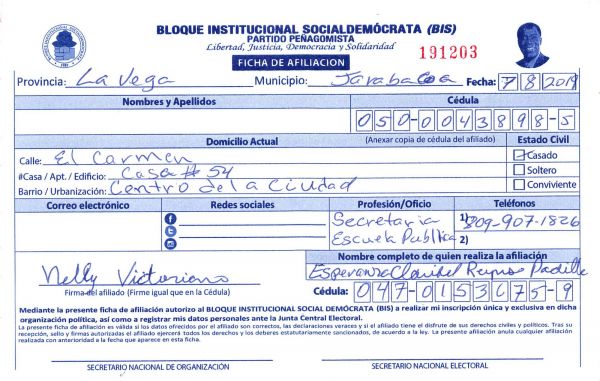 BLOQUE INSTITUCIONAL SOCIALDEMÓCRATA (BIS)
PARTIDO PEÑAGOMISTA
Libertad, Justicia, Democracia y Solidaridad
FICHA DE AFILIACION
191203
Provincia: La Vega Municipio: Jarabacoa Fecha: 7/8/2019
Nombres y Apellidos Cédula
050-0043898-5
Domicilio Actual (Anexar copia de cédula del afiliado) Estado Civil
Calle: El Carmen Casado
#Casa / Apt. / Edificio: Casa # 54 Soltero
Barrio / Urbanización: Centro de la Ciudad Conviviente
Correo electrónico Redes sociales Profesión/Oficio Teléfonos
Secretaria 1) 809-907-1826
Escuela Publica 2)
Nombre completo de quien realiza la afiliación
Nelly Victoriano Esperanza Claribel Reynoso Padilla
Firma del afiliado (Firme igual que en la Cédula) Cédula: 047-0153675-9
Mediante la presente ficha de afiliación autorizo al BLOQUE INSTITUCIONAL SOCIAL DEMÓCRATA (BIS) a realizar mi inscripción única y exclusiva en dicha
organización política, así como a registrar mis datos personales ante la Junta Central Electoral.
La presente ficha de afiliación es válida si los datos ofrecidos por el afiliado son correctos, las declaraciones veraces y si el afiliado tiene el disfrute de sus derechos civiles y políticos. Tras su
recepción, sello y firmas autorizadas el afiliado ejercerá todos los derechos y los deberes estatutariamente sancionados, de acuerdo a la ley. La presente afiliación anula cualquier afiliación
realizada con anterioridad a la fecha que aparece en esta ficha.
SECRETARIO NACIONAL DE ORGANIZACIÓN SECRETARIO NACIONAL ELECTORAL